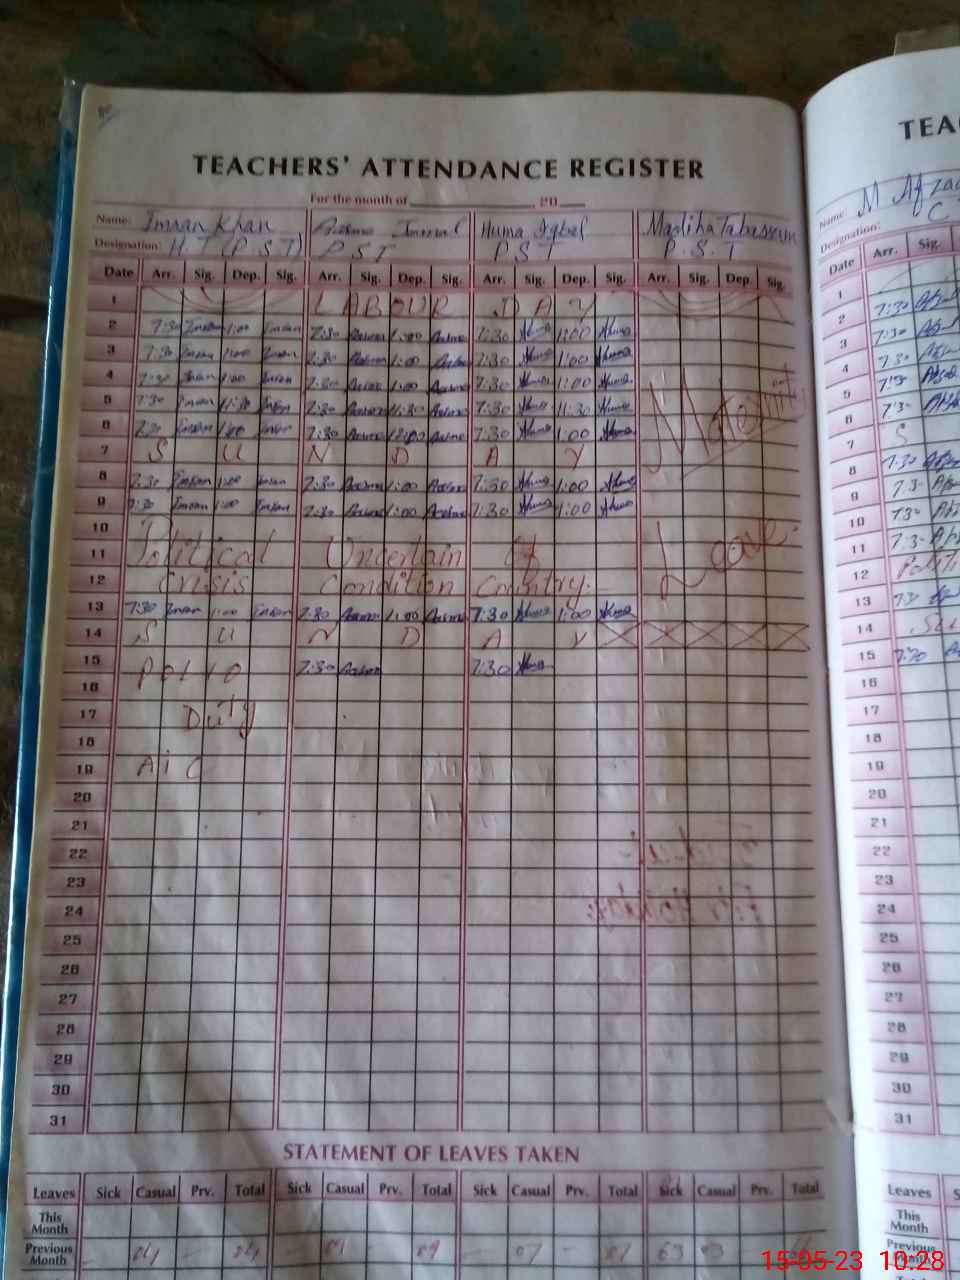 TEACHERS' ATTENDANCE REGISTER
For the month of 20
Name: Imran Khan Huma Iqbal Madiha Tabassum
Designation: H.T (P.S.T) P S T P S T P.S.T
Date Arr. Sig. Dep. Sig. Arr. Sig. Dep. Sig. Arr. Sig. Dep. Sig. Arr. Sig. Dep. Sig.
1 LABOUR DAY
2 7:30 Imran 1:00 Imran 7:30 Asma 1:00 Asma 7:30 Huma 1:00 Huma
3 7:30 Imran 1:00 Imran 7:30 Asma 1:00 Asma 7:30 Huma 1:00 Huma
4 7:30 Imran 1:00 Imran 7:30 Asma 1:00 Asma 7:30 Huma 1:00 Huma
5 7:30 Imran 11:30 Imran 7:30 Asma 11:30 Asma 7:30 Huma 11:30 Huma
6 7:30 Imran 1:00 Imran 7:30 Asma Asma 7:30 Huma 1:00 Huma
7 S U N D A Y
8 7:30 Imran 1:00 Imran 7:30 Asma 1:00 Asma 7:30 Huma 1:00 Huma
9 7:30 Imran 1:00 Imran 7:30 Asma 1:00 Asma 7:30 Huma 1:00 Huma
10
11 Political Uncertain Of Leave.
12 Crisis Condition Country.
13 7:30 Imran 1:00 Imran 7:30 Asma 1:00 Asma 7:30 Huma 1:00 Huma
14 S U N D A Y
15 Polio 7:30 Asma 7:30 Huma
16
17 Duty
18
19 AiC
20
21
22
23
24
25
26
27
28
29
30
31
STATEMENT OF LEAVES TAKEN
Leaves Sick Casual Prv. Total Sick Casual Prv. Total Sick Casual Prv. Total Sick Casual Prv. Total
This Month
Previous Month 04 04 09 09 07 07 63 03
TEA
Name M Afzaa
Designation: C
Date Arr. Sig.
1
2 7:30
3 7:30
4 7:30
5 7:30
6 7:30
7 S
8 7:30
9 7:30
10 7:30
11 7:30
12 Politi
13 7:30
14 SU
15 7:30
16
17
18
19
20
21
22
23
24
25
26
27
28
29
30
31
Leaves S
This Month
Previous Month
15-05-23 10:28